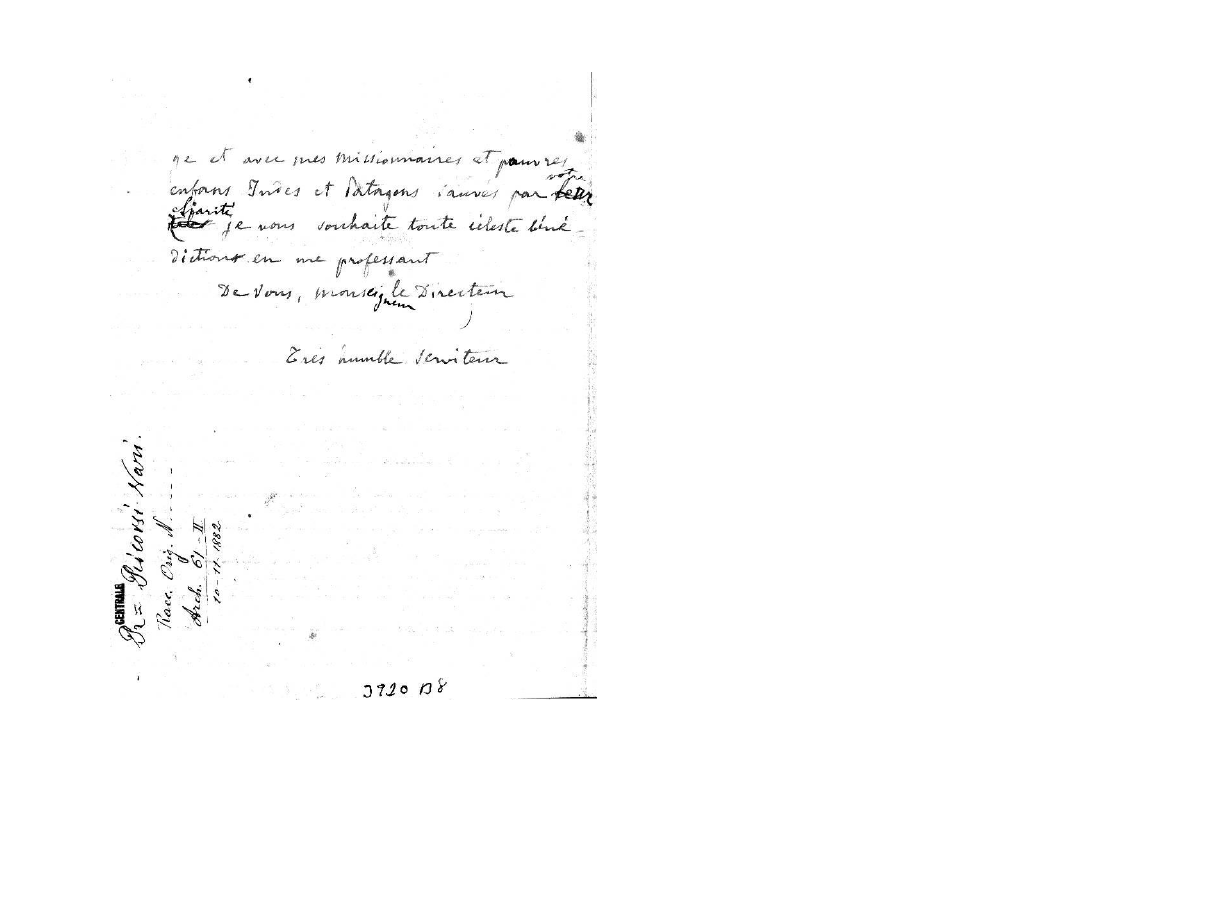 ge et avec mes Missionnaires et pauvres
votre
enfans Indes et Patagons sauvés par leur
charité
je vous souhaite toute céleste béné-
dictions en me professant
De Vous, monseigneur le Directeur
Très humble serviteur
CENTRALE
Arch. 61-II
10-11-1882
3920 B8